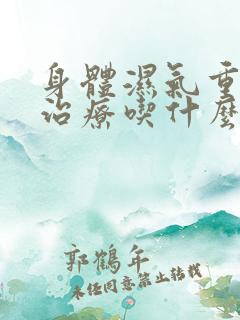 身體濕氣重
治療喫什麼
郭鶴年
未經同意禁止轉載